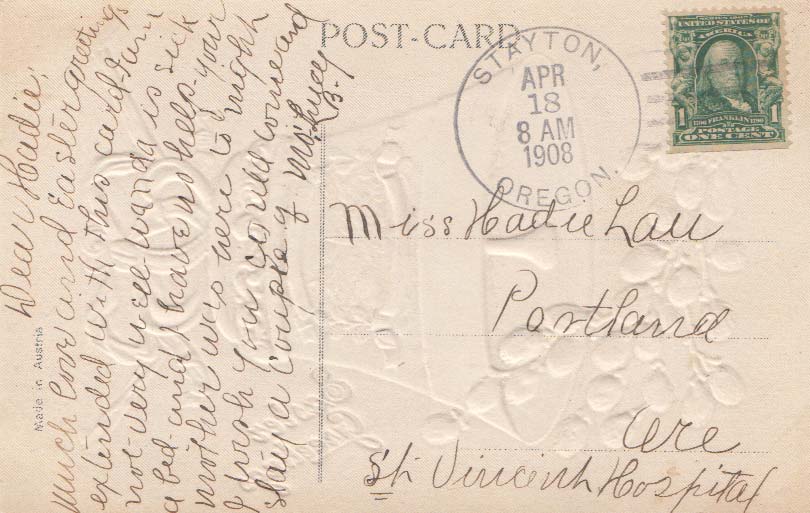 POST-CARD
STAYTON,
APR
18
8 AM
1908
OREGON.
SERIES 1902
UNITED STATES OF
AMERICA
1 FRANKLIN 1790
POSTAGE
1 ONE CENT 1
Miss Hadie Lau
Portland
Ore
St. Vincent Hospital
Made in Austria
Dear Hadie;
Much love and Easter greetings
extended with this card. I am
not very well. Wanda is sick
a bed and I have no help. your
mother was here to night
I wish you could come and
stay a couple of mo. Lucy
B-